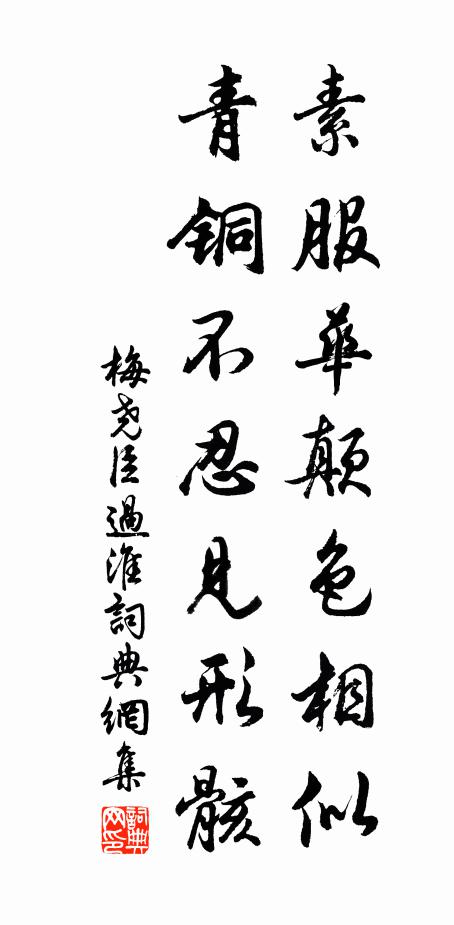 素服華顛色相似
青銅不忍見形骸
梅尧臣過淮詞典網集
詞典网印